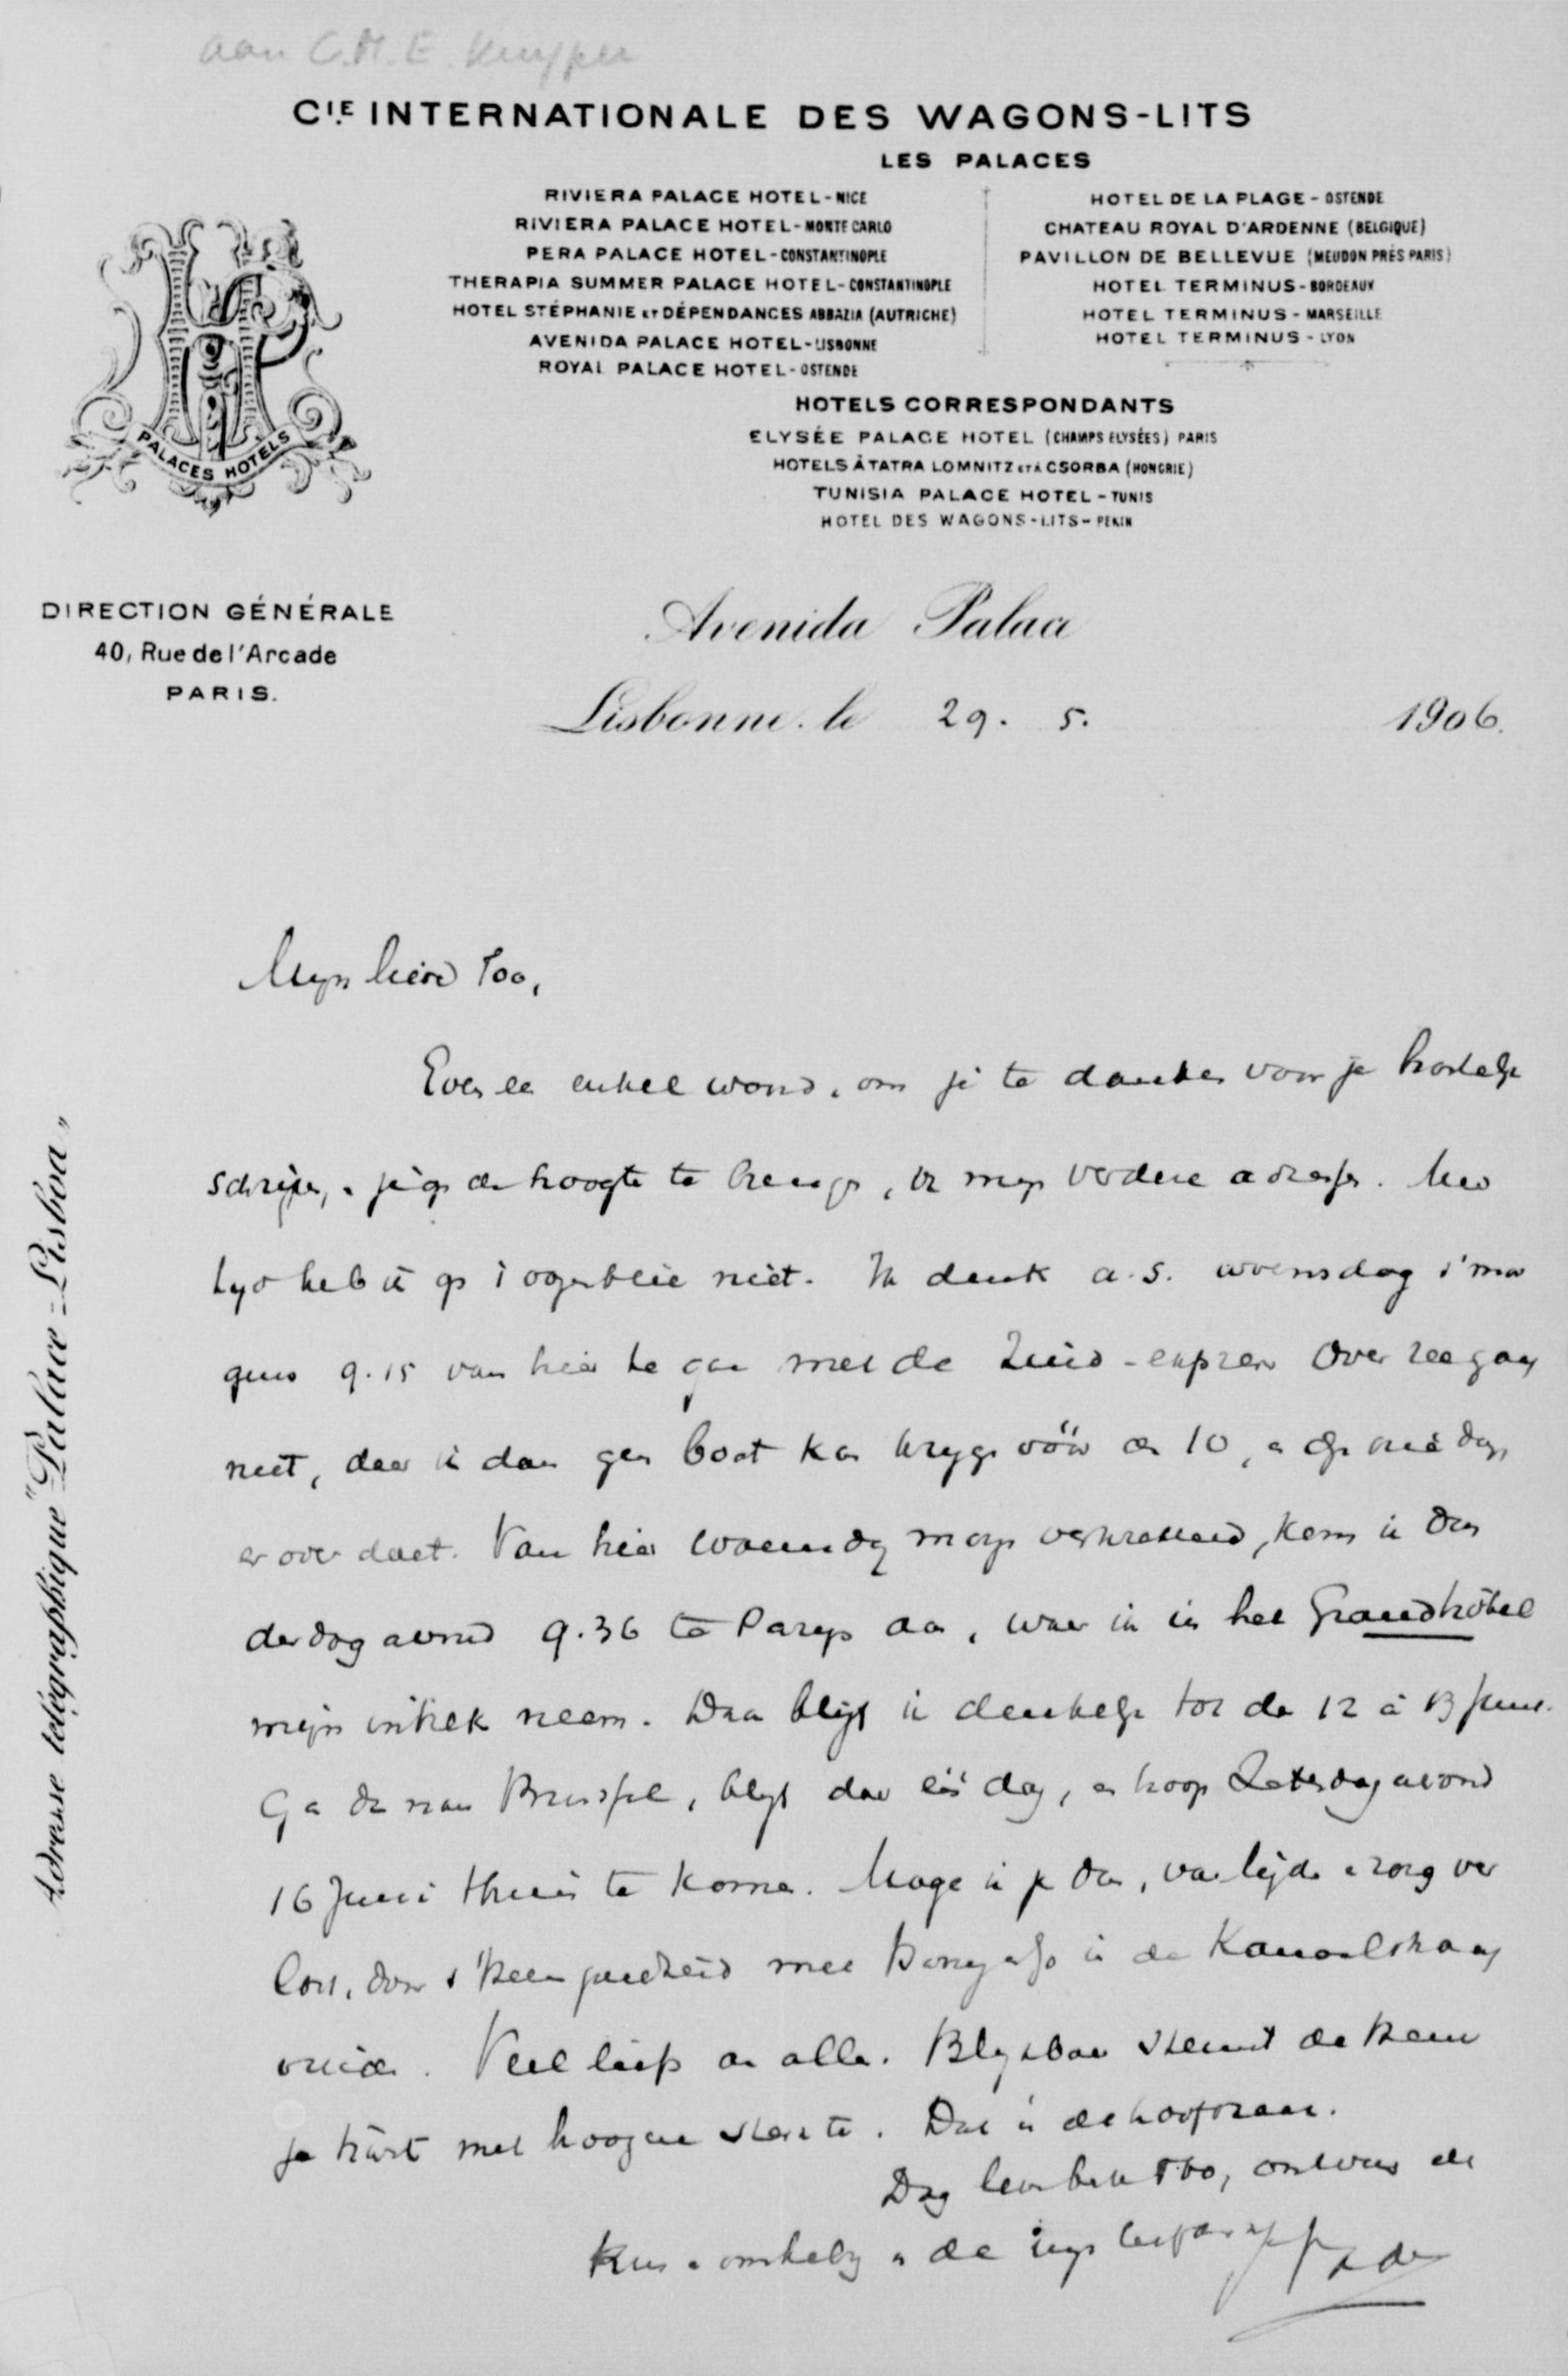 aan C.M.E. Kuyper
CIE INTERNATIONALE DES WAGONS-LITS
LES PALACES
RIVIERA PALACE HOTEL - NICE
RIVIERA PALACE HOTEL - MONTE CARLO
PERA PALACE HOTEL - CONSTANTINOPLE
THERAPIA SUMMER PALACE HOTEL - CONSTANTINOPLE
HOTEL STÉPHANIE ET DÉPENDANCES ABBAZIA (AUTRICHE)
AVENIDA PALACE HOTEL - LISBONNE
ROYAL PALACE HOTEL - OSTENDE
HOTEL DE LA PLAGE - OSTENDE
CHATEAU ROYAL D'ARDENNE (BELGIQUE)
PAVILLON DE BELLEVUE (MEUDON PRÈS PARIS)
HOTEL TERMINUS - BORDEAUX
HOTEL TERMINUS - MARSEILLE
HOTEL TERMINUS - LYON
HOTELS CORRESPONDANTS
ELYSÉE PALACE HOTEL (CHAMPS ELYSÉES) PARIS
HOTELS À TATRA LOMNITZ ET À CSORBA (HONGRIE)
TUNISIA PALACE HOTEL - TUNIS
HOTEL DES WAGONS-LITS - PEKIN
PALACES HOTELS
DIRECTION GÉNÉRALE
40, Rue de l'Arcade
PARIS.
Avenida Palace
Lisbonne. le 29. 5. 1906.
Adresse télégraphique "Palace-Lisboa"
Mijn lieve Too,
Even een enkel woord, om je te danken voor je
schrijven, je op de hoogte te brengen, mijn verdere adressen. Meer
tijd heb ik op 't ogenblik niet. Ik denk a.s. woensdag 's mor
gens 9.15 van hier te gaan met de Zuid-expres. Over zee gaan
niet, daar ik dan geen boot kan krijgen vóór den 10, dagen
er over doet. Van hier woensdag morgen vertrekkend, kom ik don
derdag avond 9.36 te Parijs aan, waar ik in het Grandhôtel
mijn intrek neem. Daar blijf ik denkelijk tot de 12 à 13 Juni.
Ga dan naar Brussel, blijf daar één dag, en hoop Zaterdag avond
16 Juni thuis te komen. Moge ik je dan, van lijden en zorg ver
lost, door met in de Kanaalstraat
vinden. Veel liefs aan allen. Blijkbaar steunt de Heer
je hart met hoogere sterkte. Dat is de hoofdzaak.
Dag Too, ontvang de
kus en omhelzing de